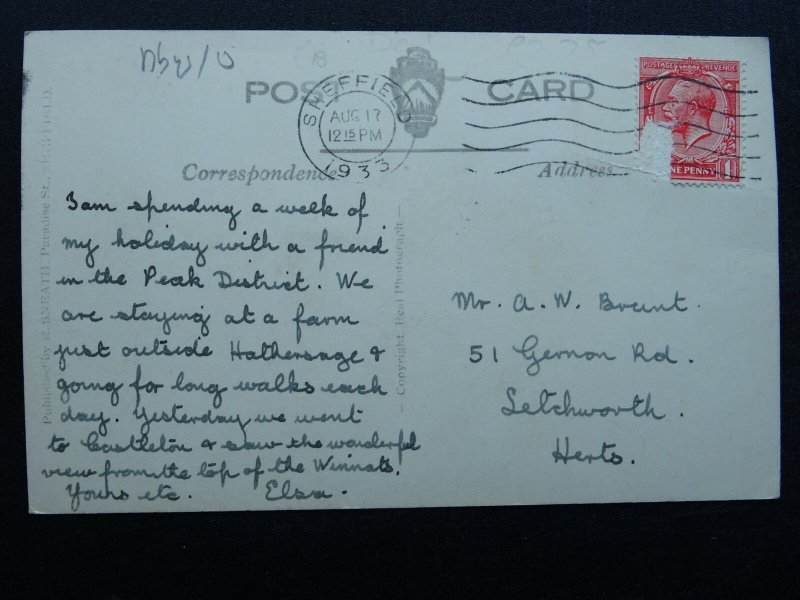 POST CARD
SHEFFIELD
AUG 17
12 15 PM
1933
POSTAGE REVENUE
ONE PENNY
Correspondence
Address
I am spending a week of
my holiday with a friend
in the Peak District. We
are staying at a farm
just outside Hathersage &
going for long walks each
day. Yesterday we went
to Castleton & saw the wonderful
view from the top of the Winnats.
Yours etc. Elsa.
Mr. A. W. Brunt.
51 Gernon Rd.
Letchworth.
Herts.
Published by R. SNEATH, Paradise St., SHEFFIELD.
— Copyright. Real Photograph —